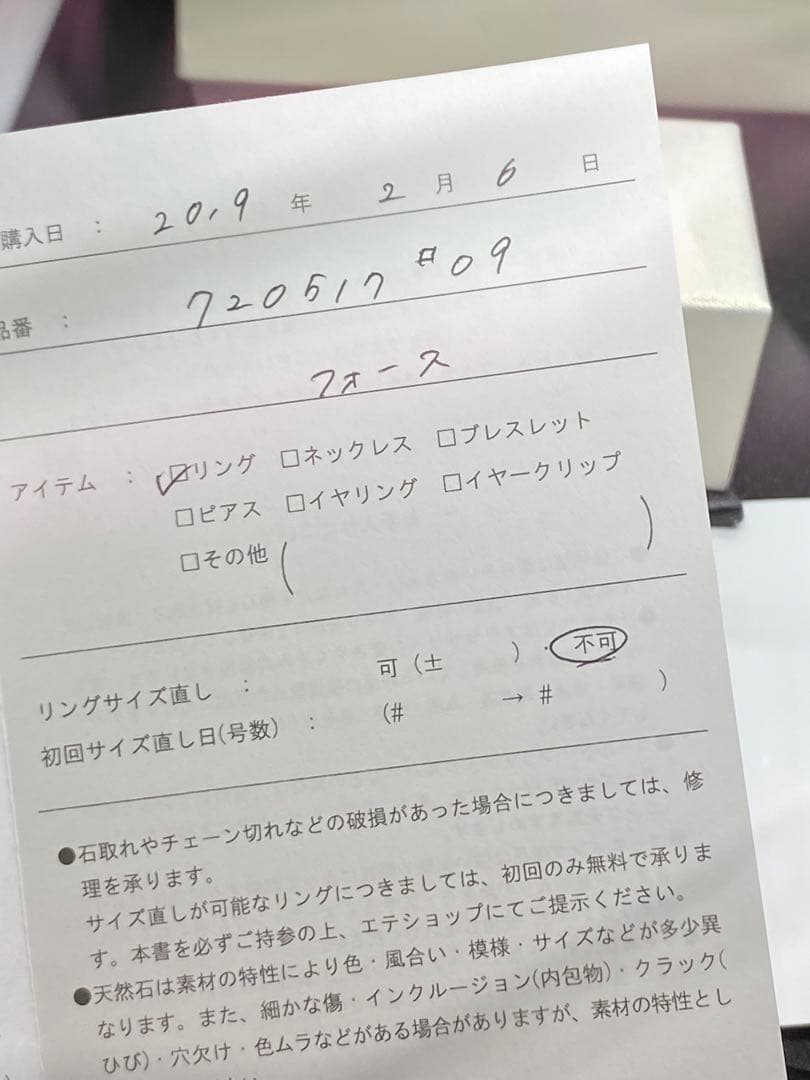 購入日 : 2019 年 2 月 6 日
品番 : 720517 #09
フォース
アイテム : ☑リング □ネックレス □ブレスレット
□ピアス □イヤリング □イヤークリップ
□その他( )
リングサイズ直し : 可(± )・不可
初回サイズ直し日(号数) : (# → # )
●石取れやチェーン切れなどの破損があった場合につきましては、修
理を承ります。
サイズ直しが可能なリングにつきましては、初回のみ無料で承りま
す。本書を必ずご持参の上、エテショップにてご提示ください。
●天然石は素材の特性により色・風合い・模様・サイズなどが多少異
なります。また、細かな傷・インクルージョン(内包物)・クラック(
ひび)・穴欠け・色ムラなどがある場合がありますが、素材の特性とし